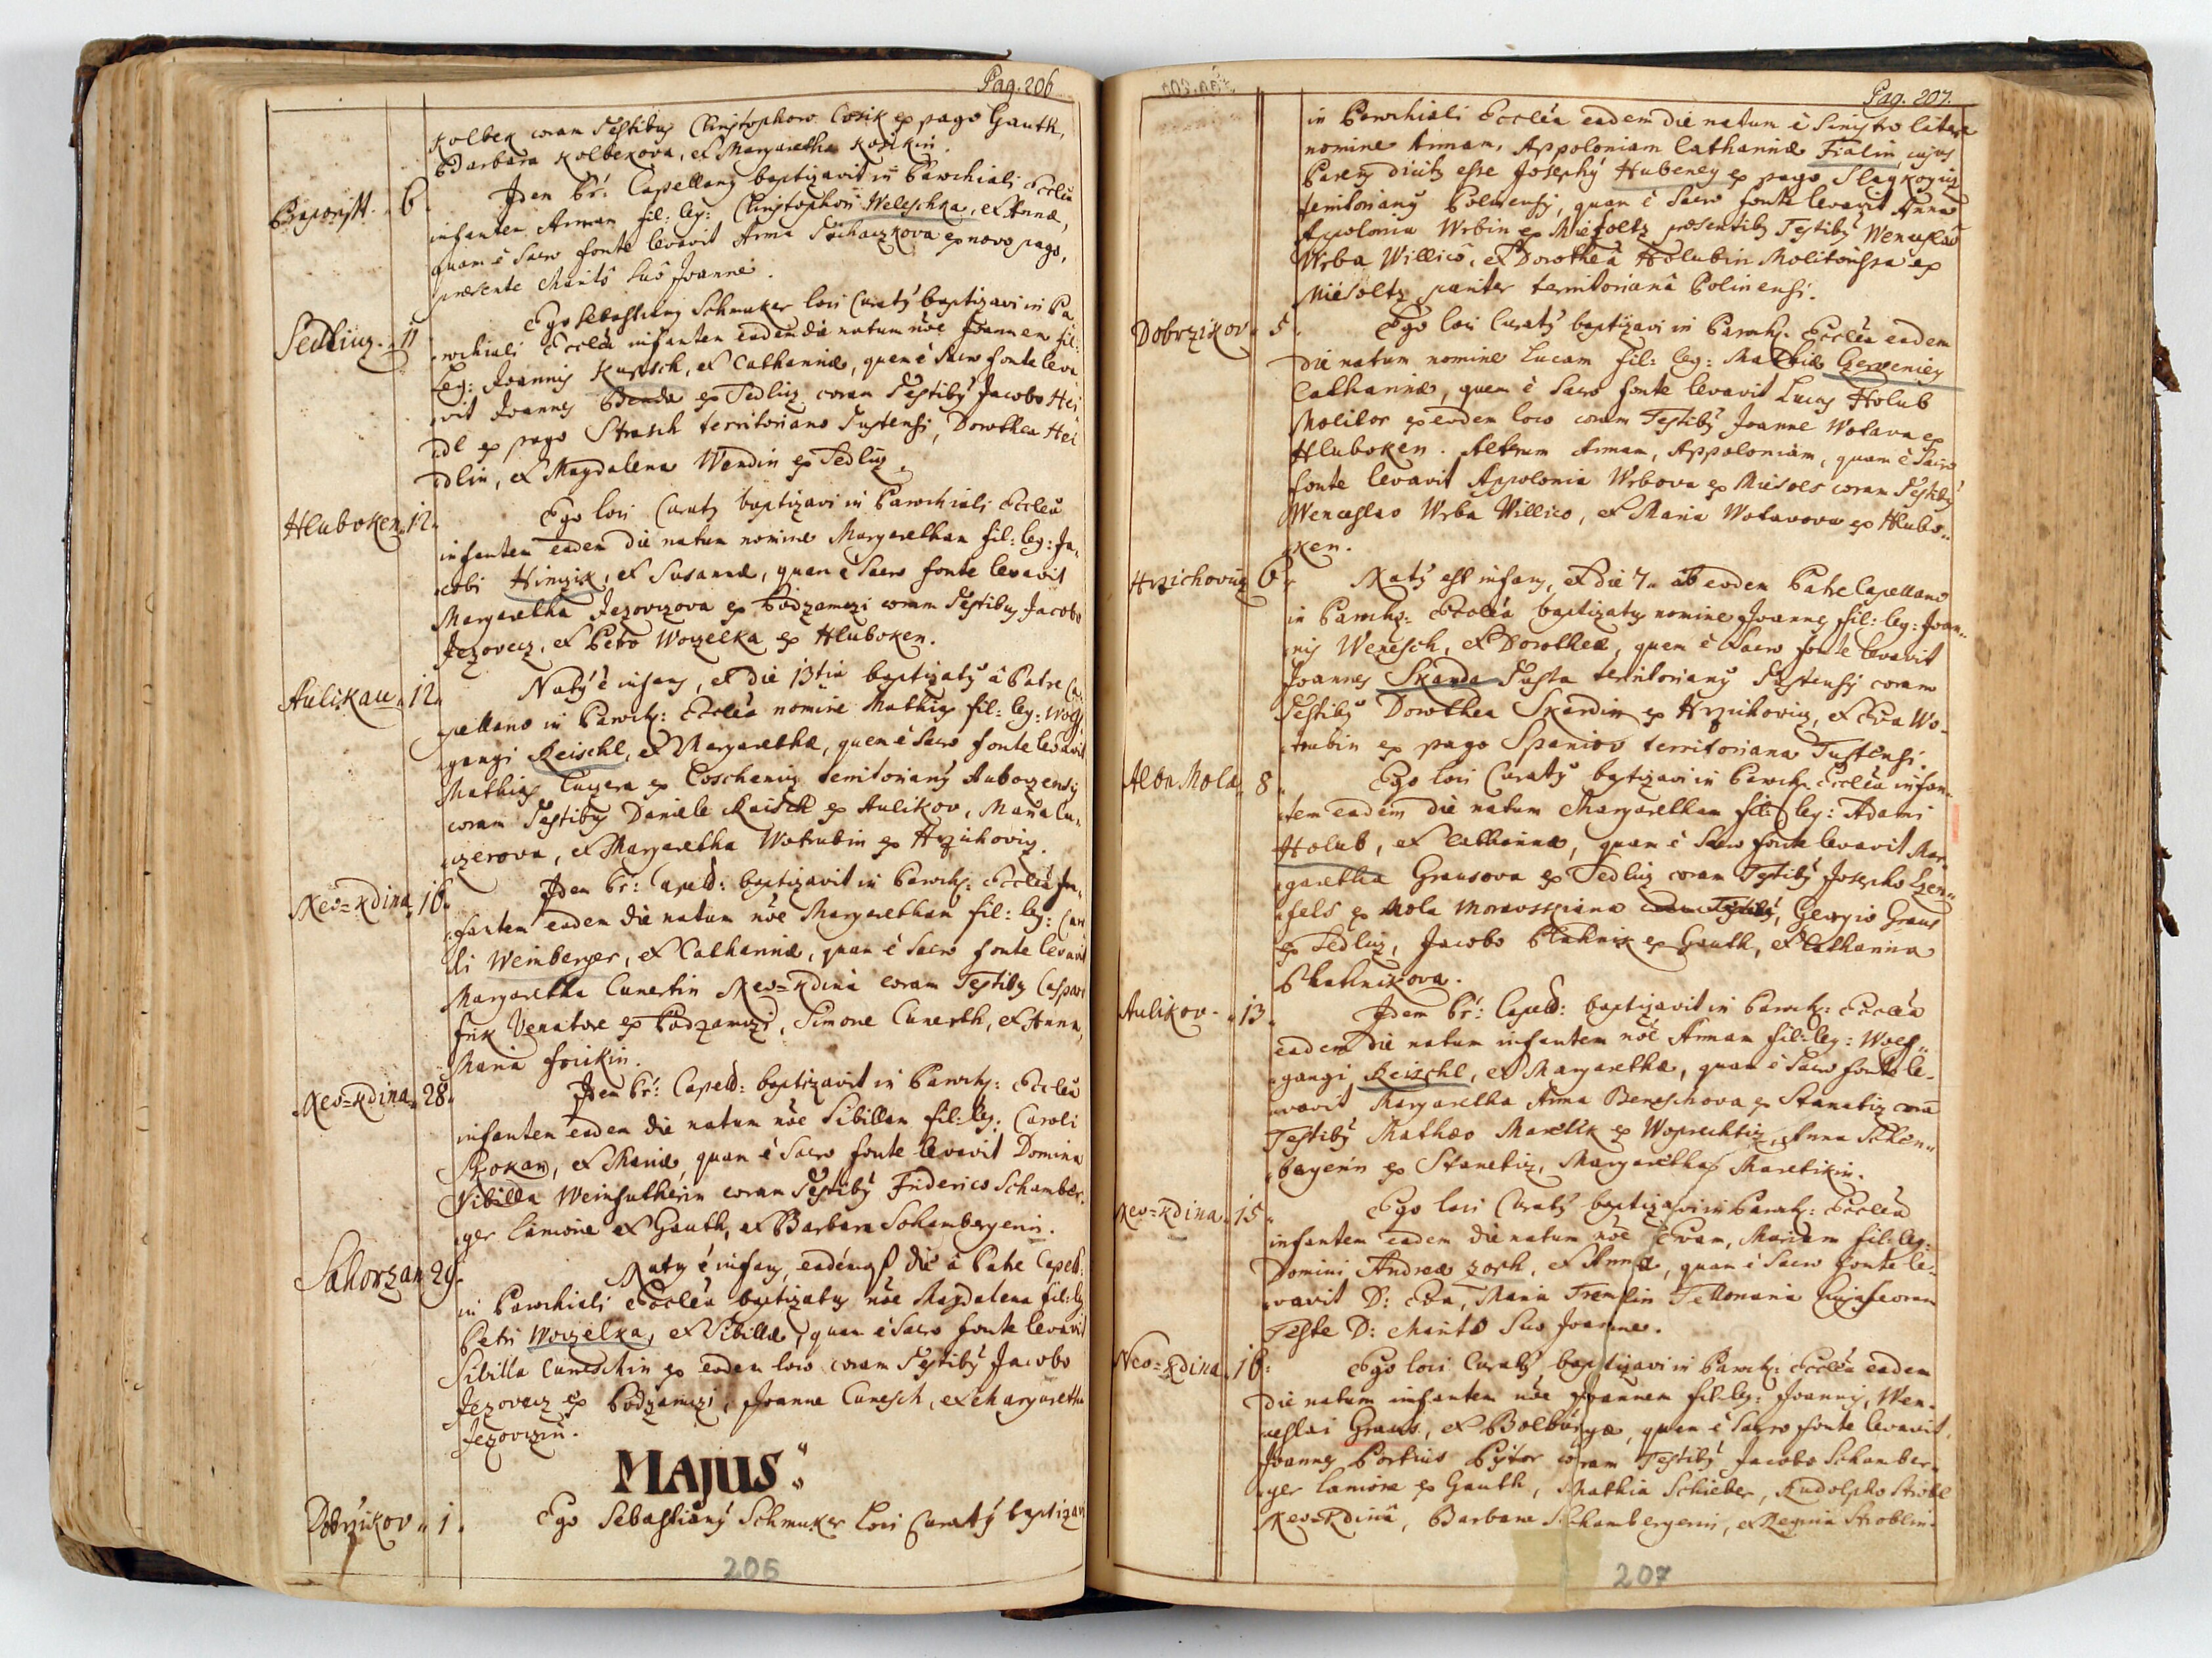 Pag. 206
Kolbek coram Testibus Christophoro Cosik ex pago Gauth,
Barbara Kolbekova, et Margaretha Kosikin.
6. Idem Pr: Capellanus baptizavit in Parochiali Ecclia
infantem Annam fil: leg: Christophori Weleschka, et Annæ,
quam è Sacro fonte levavit Anna ex novo pago,
præsente Marito Suo Joanne.
Sedliuz. 11 Ego Sebastianus Schmuker loci Curatus baptizavi in Pa,
rochiali Ecclia infantem eadem die natum nõe Joannem fil:
Leg: Joannis Kutsch, et Catharinæ, quem è Sacro fonte leva
vit Joannes Benda ex Sedliuz coram Testibus Jacobo Hei
dl ex pago Strasch territoriano Tustensi, Dorothea Hei
dlin, et Magdalena Wendin ex Sedliuz.
Hluboken. 12. Ego loci Curatus baptizavi in Parochiali Ecclia
infantem eadem die natum nomine Margaretham fil: leg: Ja,
cobi Himzik, et Susannæ, quam è Sacro fonte levavit
Margaretha Jezovizova ex Podzamczi coram Testibus Jacobo
Jezovecz, et Petro Wozelka ex Hluboken.
Aulikau. 12. Natus è infans, et die 13tia baptizatus â Patre Ca,
pellano in Paroch: Ecclia nomine Mathias fil: leg: Wolf
gangi Reischl, et Margarethæ, quem è Sacro fonte levavit
Mathias Cuczera ex Coschenitz territorianus
coram Testibus Daniele Raisch ex Aulikov, Maria Cu,
czerova, et Margaretha Wotrubin ex Hrzichoviz.
Neo=Kdina. 16. Idem Pr: Capeld: baptizavit in Paroch: Ecclia In,
fantem eadem die natum nõe Margaretham fil: leg: Caro
li Weinberger, et Catharinæ, quam è Sacro fonte levavit
Margaretha Cunertin Neo=Kdina coram Testibus Caspare
Frik Venatore ex Podzamczi, Simone Cunerth, et Anna,
Maria
Neo=Kdina. 28. Idem Pr: Capeld: baptizavit in Paroch: Ecclia
infantem eadem die natum nõe Sibillam fil: leg: Caroli
Rokan, et Mariæ, quam è Sacro fonte levavit Domina
Sibilla coram Testibus Friderico Schamber,
ger Lanione ex Gauth, et Barbara Schambergerin.
Sahorzan 29. Natus è infans, eademq die â Patre Capeld:
in Parochiali Ecclia baptizatus nõe Magdalena fil: leg
Petri Wozelka, et Sibillæ, quam è Sacro fonte levavit
Sibilla Cuneschin ex eodem loco coram Testibus Jacobo
Jezovecz ex Podzamczi, Joanne Cunesch, et Margaretha
Jezovizin.
MAJUS
Dobrzikov. 1. Ego Sebastianus Schmuker Loci Curatus baptizavi
206
Pag. 207.
in Parochiali Ecclia eadem die natum è Sinistro latere
nomine Annam, Appoloniam Catharinæ Fialin, cujus
Parens dicitr esse Josephus Hubeney ex pago
territorianus quam è Sacro fonte levavit Anna
Apolonia Wrbin ex Miesoltz præsentibus Testibus Wenceslao
Wrba Willico, et Dorothea Holubin Molitorissa ex
Miesoltz pariter territoriana Polinensi.
Dobrzikov. 5. Ego loci Curatus baptizavi in Paroch: Ecclia eadem
die natum nomine Lucam fil: leg: Mathiæ Czerveniey
Catharinæ, quem è Sacro fonte levavit Lucas Holub
Molitor ex eodem loco coram Testibus Joanne Wotava ex
Hluboken. Alteram Annam, Appoloniam, quam è Sacro
fonte levavit Appolonia Wrbova ex Miesols coram Testibus
Wenceslao Wrba Willico, et Maria Wotavova ex Hlubo,,
ken.
Hrzichoviz 6. Natus est infans, et die 7. ab eodem Patre Capellano
in Paroch: Ecclia baptizatus nomine Joannes fil: leg: Joan,,
nis Wenesch, et Dorotheæ, quem è Sacro fonte levavit
Joannes Skarda Pusta territorianus Tustensis coram
Testibus Dorothea Skardin ex Hrzichoviz, et Eva Wo,
trubin ex pago Spaniov territoriana Tustensi.
Alba Mola. 8. Ego loci Curatus baptizavi in Paroch: Ecclia infan,
tem eadem die natum Margaretham fil: leg: Adami
Holub, et Catharinæ, quam è Sacro fonte levavit Mar,
garetha Grausova ex Sedliuz coram Testibus Josepho Czen,,
fels ex Mola Moravskiana coram Testibus, Georgio Graus
ex Sedliuz, Jacobo Plahnik ex Gauth, et Catharina
Plahnikova.
Aulikov. 13. Idem Pr: Capeld: baptizavit in Paroch: Ecclia
eadem die natum infantem nõe Annam fil: leg: Wolf,,
gangi Reischl, et Margarethæ, quam è Sacro fonte le,
vavit Margaretha Anna Beneschova ex Stanetiz corã
Testibus Mathæo Maretik ex Woprechtiz, Anna Schön,,
bayerin ex Stanetiz, Margaretha Maretikin.
Neo=Kdina. 15. Ego loci Curatus baptizavi in Paroch: Ecclia
infantem eadem die natum nõe Evam, Mariam fil: leg:
Domini Andreæ Zorh, et Annæ, quam è Sacro fonte le,
vavit D: Eva, Maria Tremlin Telonaria coram
Teste D: Marito Suo Joanne.
Neo=Kdina. 16. Ego loci Curatus baptizavi in Paroch: Ecclia eadem
die natum infantem nõe Joannem fil: leg: Joannis, Wen,
ceslai Graus, et Walburgæ, quem è Sacro fonte levavit
Joannes Portius Pistor coram Testibus Jacobo Schamber,,
ger Lanione ex Gauth, Mathia Schieber, Rudolpho Strobl
Neo=Kdinâ, Barbara Schambergerin, et Regina Stroblin.
207